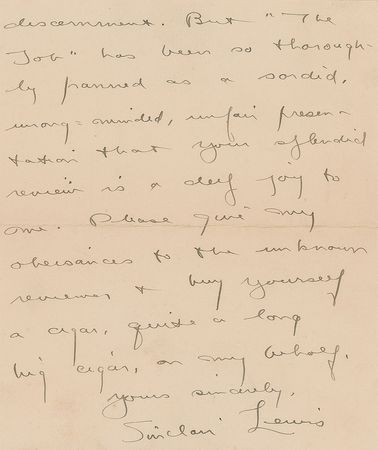 discernment. But "The
Job" has been so thorough-
ly panned as a sordid,
wrong-minded, unfair presen-
tation that your splendid
review is a deep joy to
me. Please give my
obeisances to the unknown
reviewer & buy yourself
a cigar, quite a long
big cigar, on my behalf.
Yours sincerely,
Sinclair Lewis